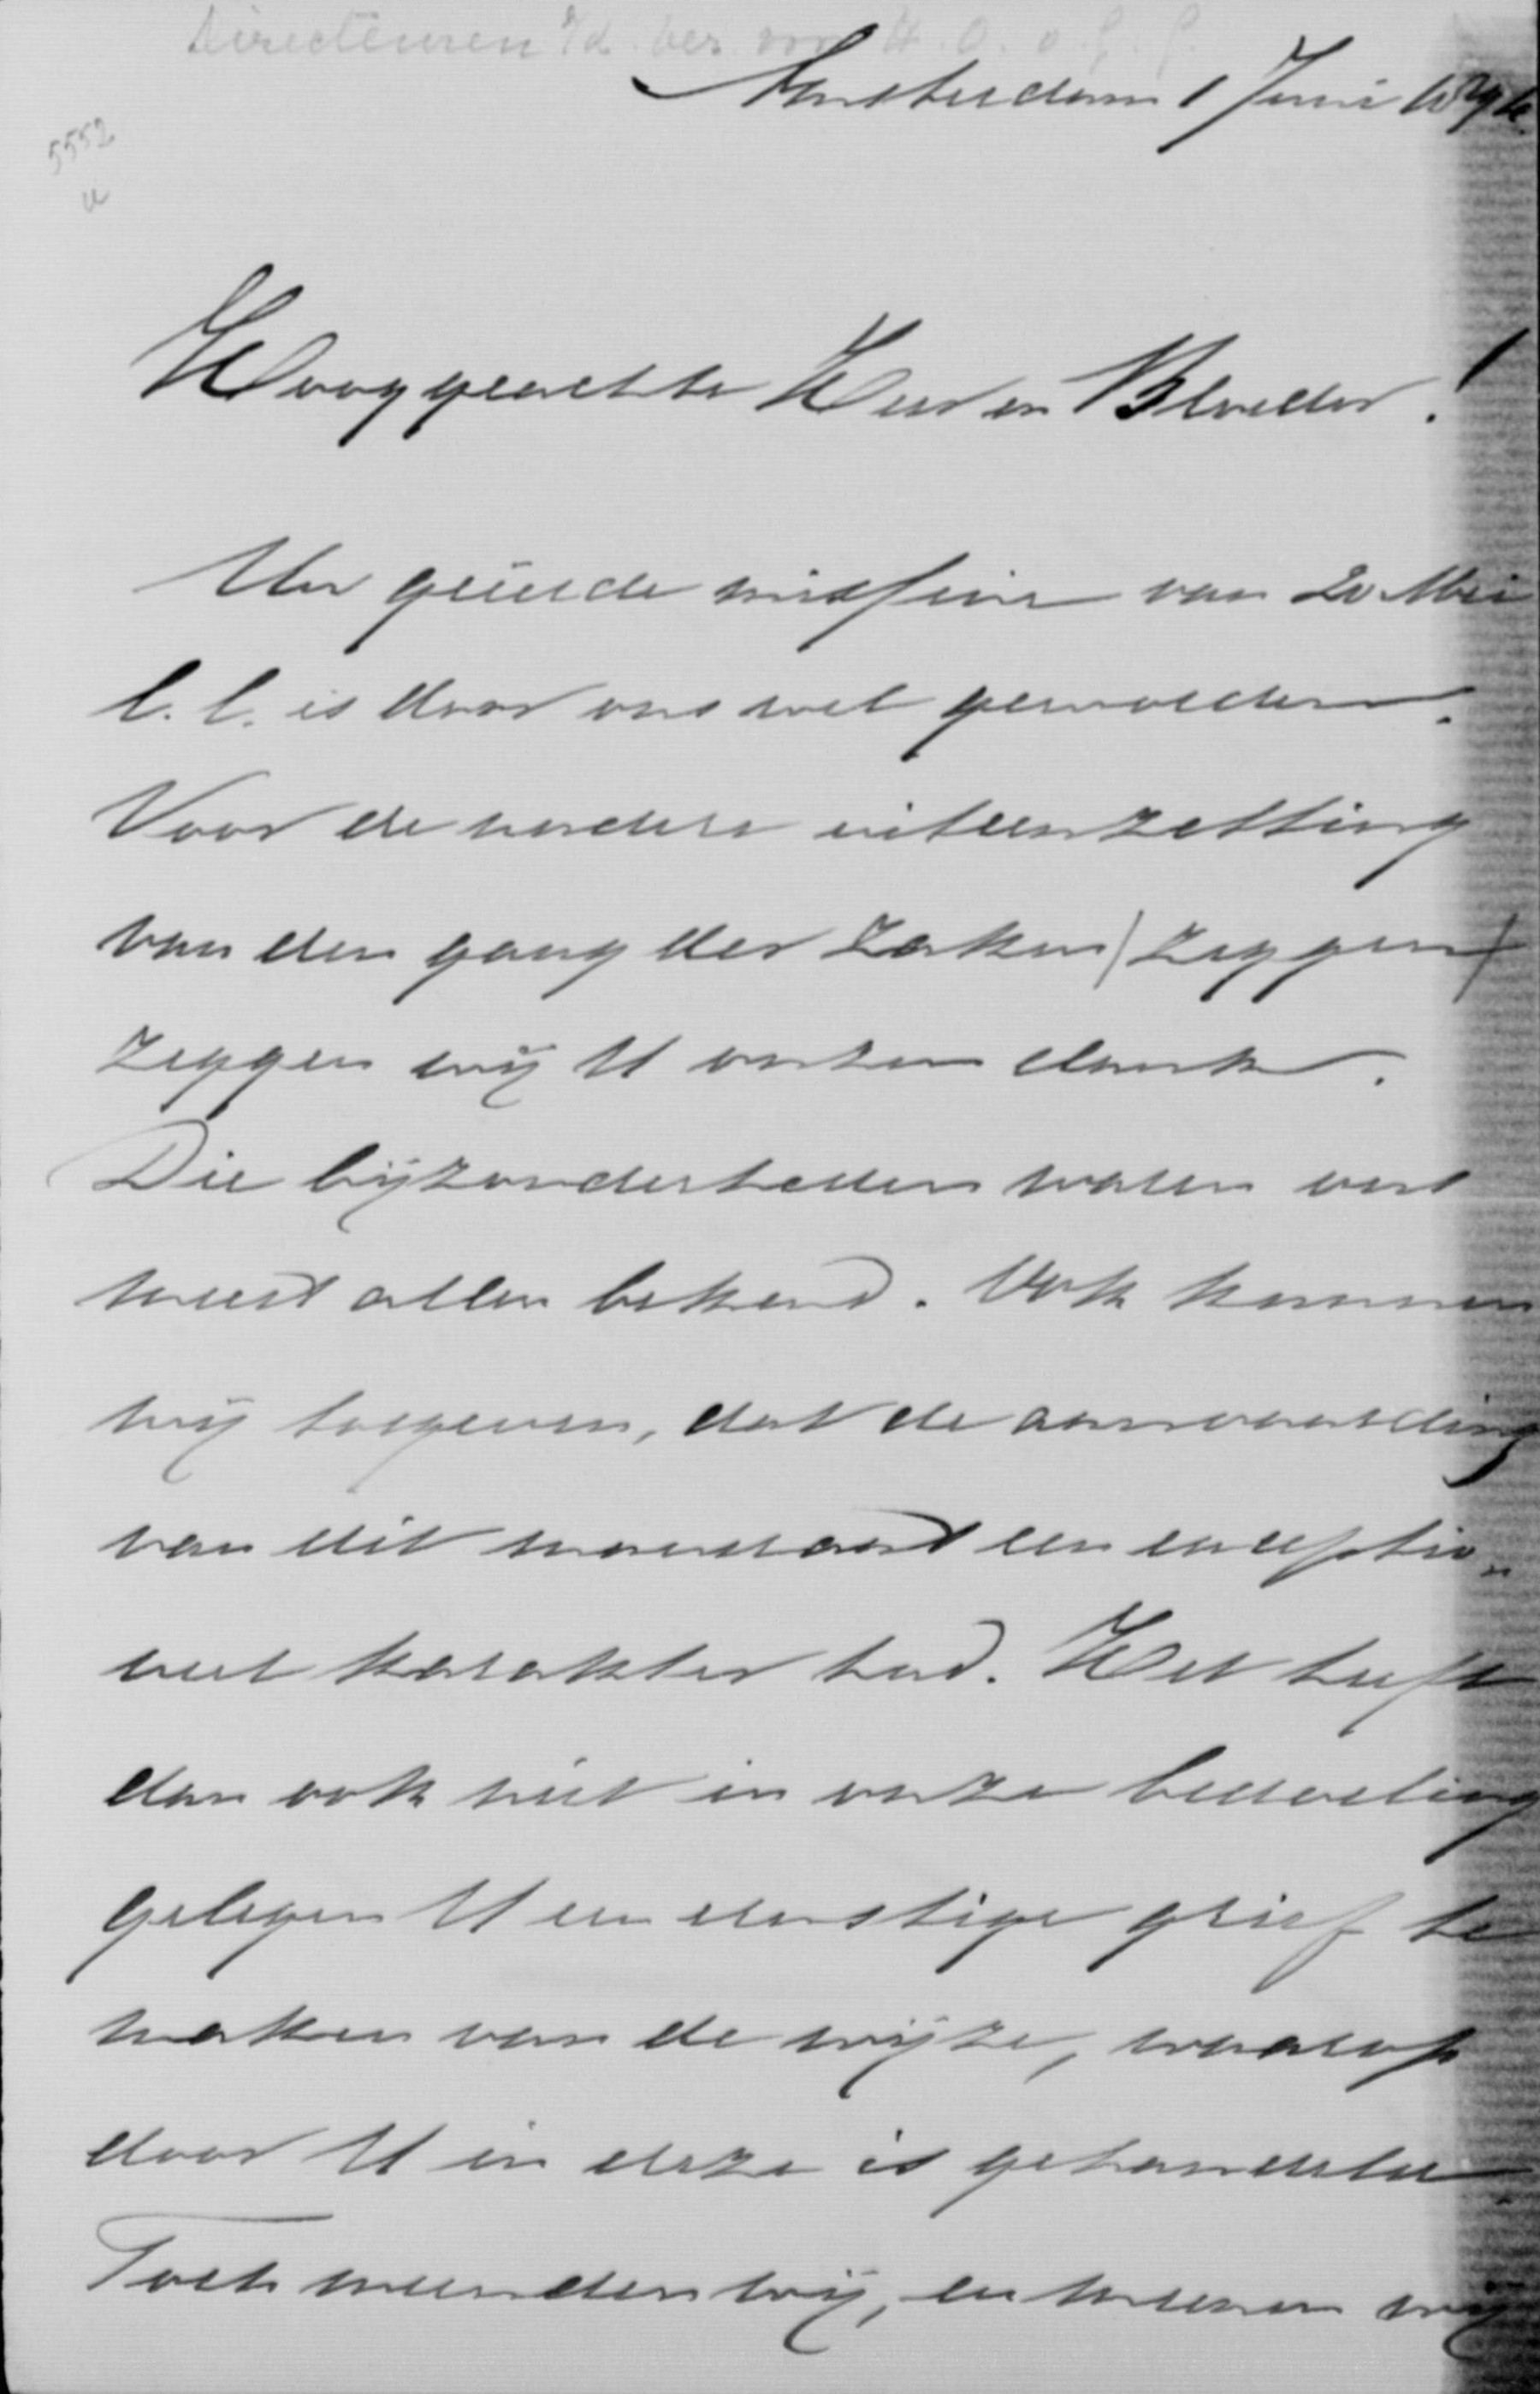 Directeuren v/d. ver. voor H. O. o. g. g.
Amsterdam 1 Juni 1894.
5552
Hooggeachte Heer en Broeder!
Uw geëerde missive van 20 Mei
l.l. is door ons wel geworden.
Voor de nadere uiteenzetting
van den gang der zaken (zeggen)
zeggen wij U onzen dank.
Die bijzonderheden waren ons
meest allen bekend. Ook kunnen
wij toegeven, dat de aanvaarding
van dit mandaat een exceptio-
neel karakter had. Het heeft
dan ook niet in onze bedoeling
gelegen U een ernstige grief te
maken van de wijze, waarop
door U in deze is gehandeld.
Toch meenden wij, en meenen wij